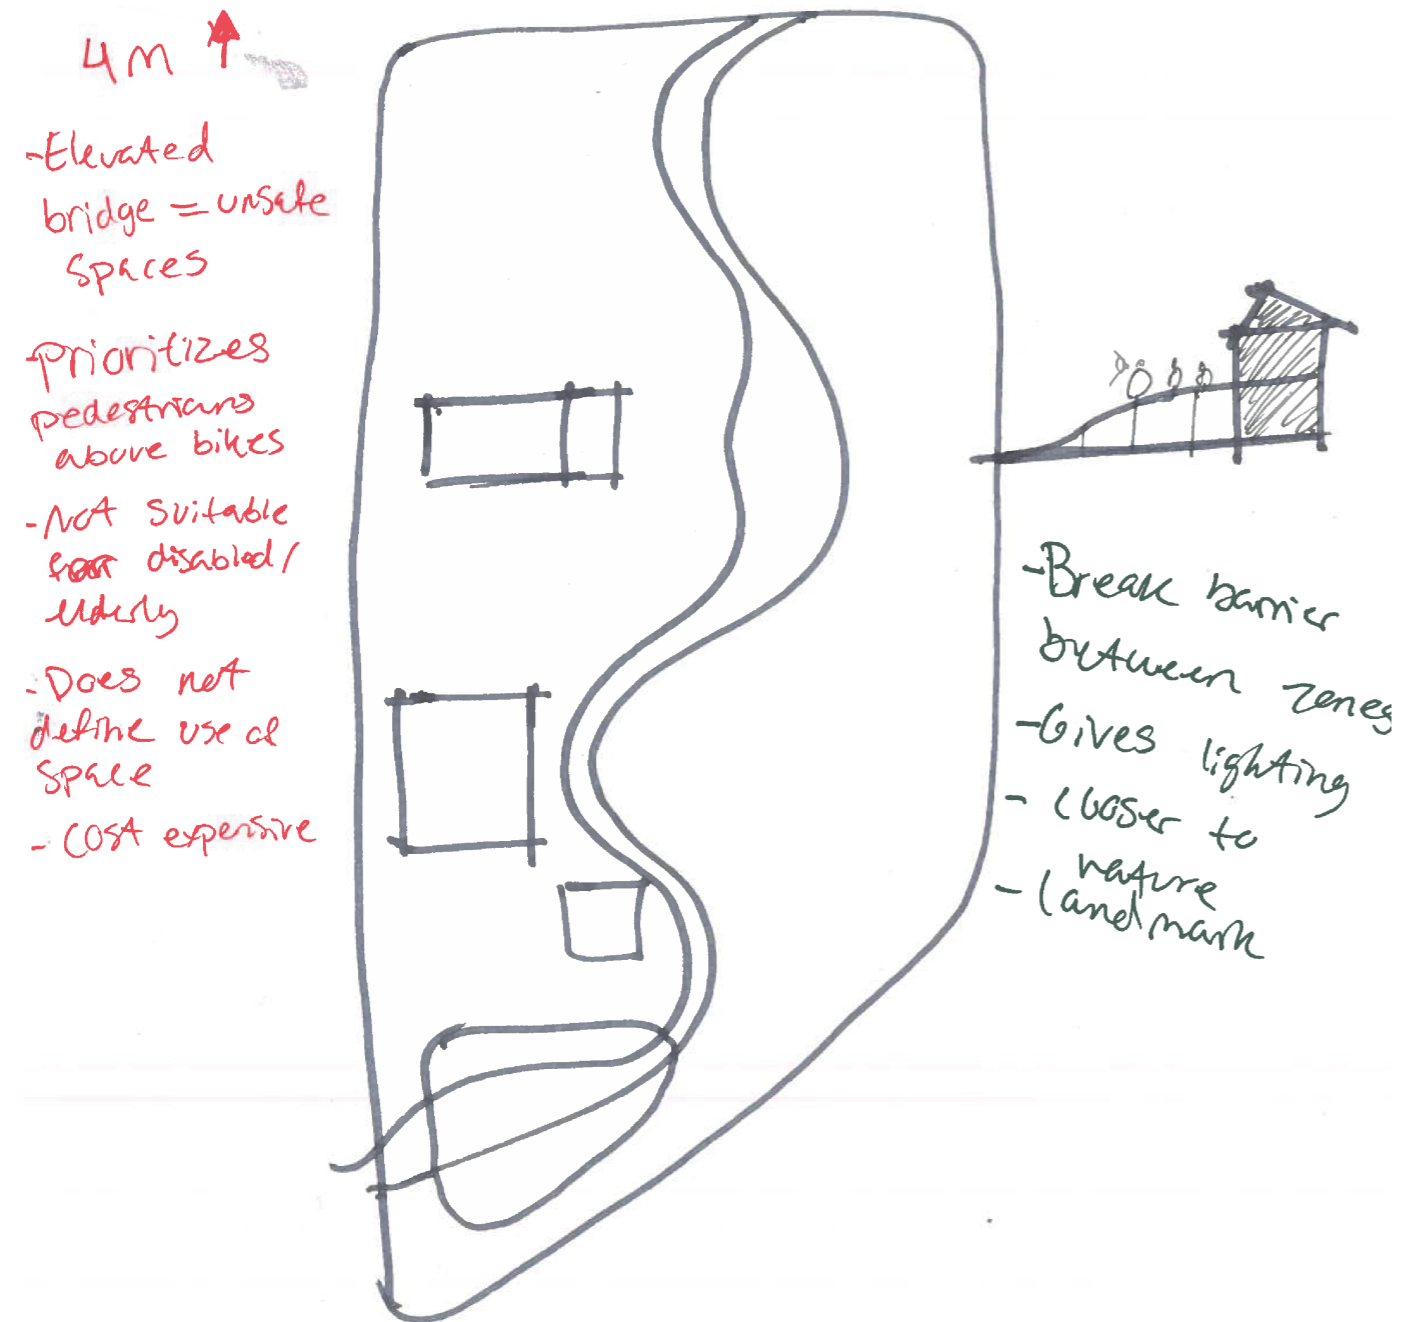 4m
-Elevated
bridge = unsafe
spaces
-prioritizes
pedestrians
above bikes
-Not suitable
for disabled/
elderly
-Does not
define use of
space
- cost expensive
-Break barrier
between zones
-Gives lighting
- closer to
nature
- landmark